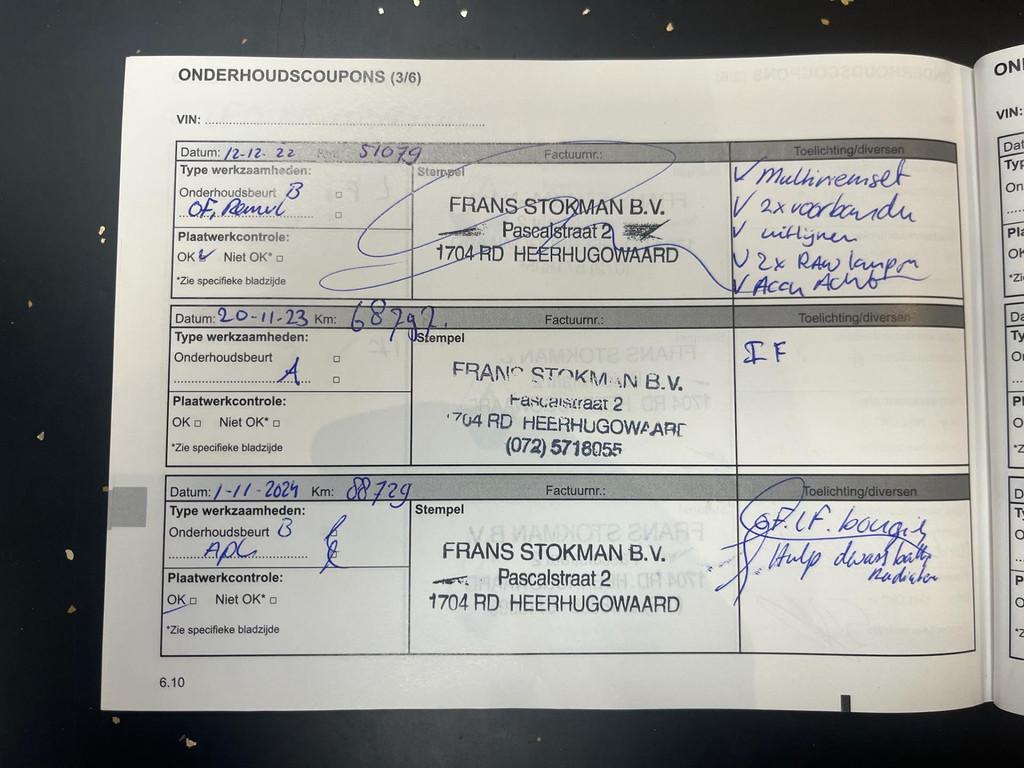 ONDERHOUDSCOUPONS (3/6)
VIN:
Datum: 12-12-22 Km: 51079 Factuurnr.: Toelichting/diversen
Type werkzaamheden:
Onderhoudsbeurt B
OF,
Plaatwerkcontrole:
OK Niet OK*
*Zie specifieke bladzijde
Stempel
FRANS STOKMAN B.V.
Pascalstraat 2
1704 RD HEERHUGOWAARD
Multiriemset
2x voorbanden
uitlijnen
2x RAW lampen
Accu
Datum: 20-11-23 Km: 68797 Factuurnr.: Toelichting/diversen
Type werkzaamheden:
Onderhoudsbeurt
A
Plaatwerkcontrole:
OK Niet OK*
*Zie specifieke bladzijde
Stempel
FRANS STOKMAN B.V.
Pascalstraat 2
1704 RD HEERHUGOWAARD
(072) 5718055
IF
Datum: 1-11-2024 Km: 88729 Factuurnr.: Toelichting/diversen
Type werkzaamheden:
Onderhoudsbeurt B
APK
Plaatwerkcontrole:
OK Niet OK*
*Zie specifieke bladzijde
Stempel
FRANS STOKMAN B.V.
Pascalstraat 2
1704 RD HEERHUGOWAARD
OF. IF. bougies
Hulp
Radiator
6.10
ON
VIN: